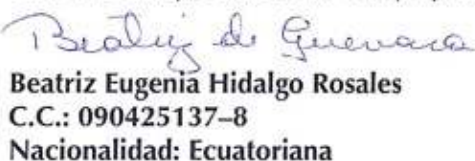 Beatriz de Guevara
Beatriz Eugenia Hidalgo Rosales
C.C.: 090425137–8
Nacionalidad: Ecuatoriana